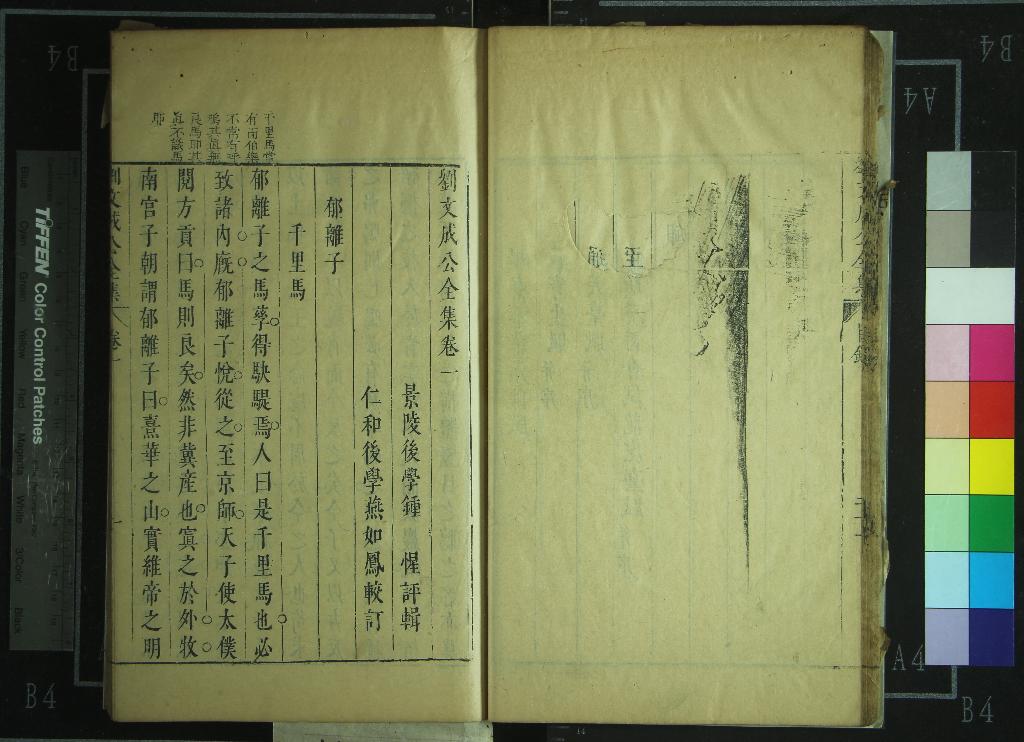 劉文成公全集卷一
景陵後學鍾惺評輯
仁和後學燕如鳳較訂
郁離子
千里馬
郁離子之馬孳得駃騠焉人曰是千里馬也必
致諸內廐郁離子悅從之至京師天子使太僕
閱方貢曰馬則良矣然非冀產也寘之於外牧
南宮子朝謂郁離子曰熹華之山實維帝之明
千里馬常
有而伯樂
不常有
良馬即甚
真不識馬
耶
劉文成公全集
卷一
目錄
至
TIFFEN Color Control Patches
Blue
Cyan
Green
Yellow
Red
Magenta
White
3/Color
Black
B4
B4
A4
A4
B4
B4